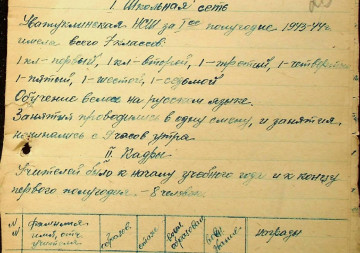 I. Школьная сеть
Уватуклинская НСШ за I ое полугодие 1943-44 г.
имела всего 7 классов:
1 кл - первый, 1 кл - второй, 1 - третий, 1 - четвертый
1 - пятый, 1 - шестой, 1 - седьмой
Обучение велось на русском языке.
Занятия проводились в одну смену, и занятия
начинались с 9 часов утра.
II. Кадры
Учителей было к началу учебного года и к концу
первого полугодия - 8 человек.
фамилия
имя, отч.
учителя
образов.
стаж
образован
звания
награды